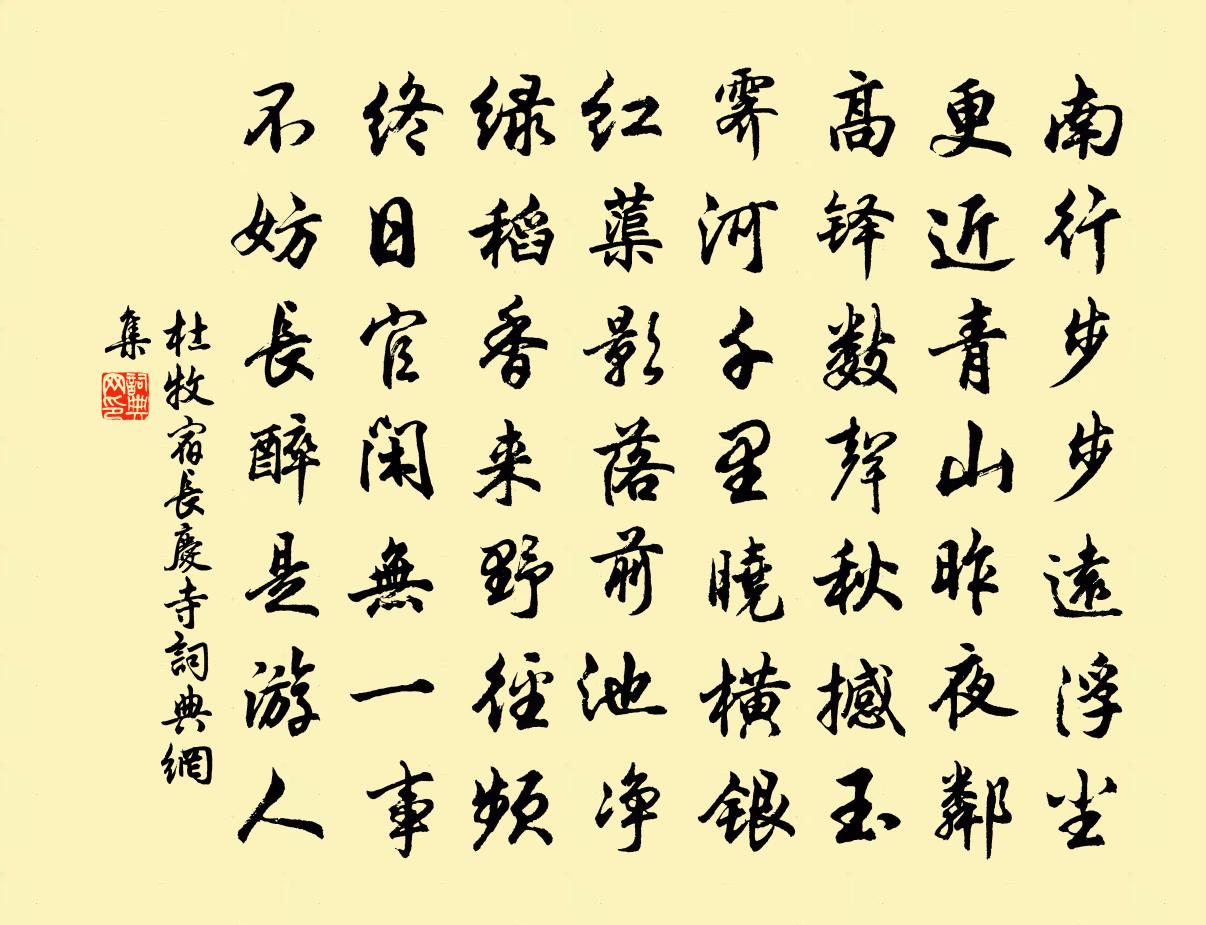 南行步步遠浮尘
更近青山昨夜鄰
高铎數聲秋撼玉
霁河千里曉横銀
红蕖影落前池净
绿稻香来野徑频
终日官闲無一事
不妨長醉是游人
杜牧宿長慶寺詞典網
集
詞典
网印